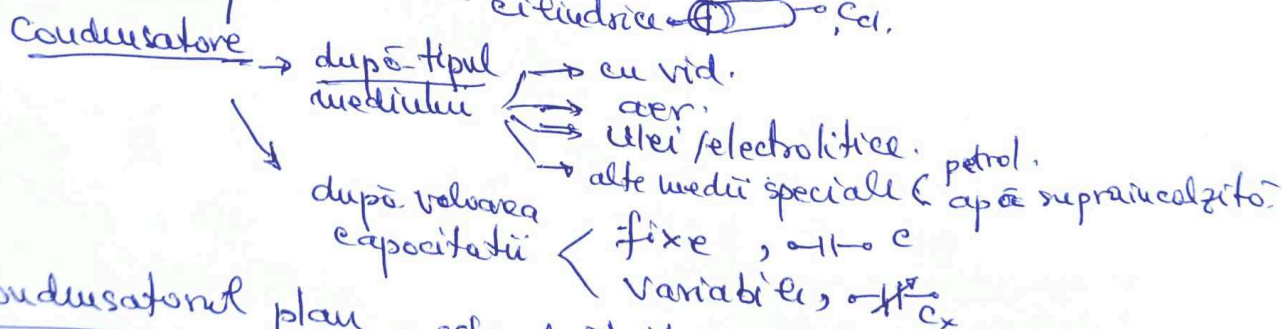 cilindrice , Ccl.
Condensatore → după tipul → cu vid.
mediului → aer.
→ ulei / electrolitice.
→ alte medii speciale petrol.
apă supraincalzită.
după valoarea
capacitatii
fixe , C
variabile, Cx
ondensatorul plan